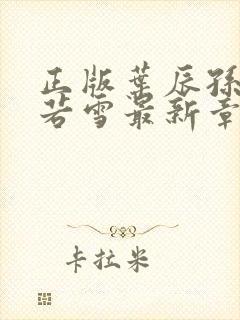 正版葉辰孫
若雪最新章
卡拉米